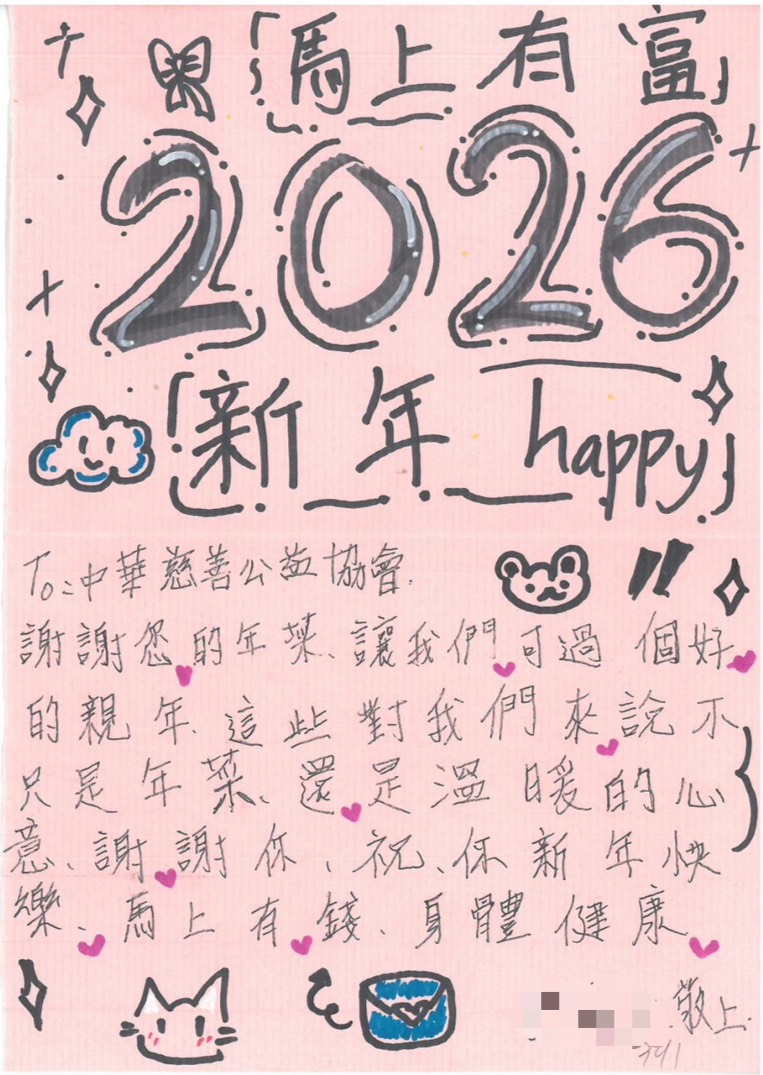 「馬上有富」
2026
「新年 happy」
To:中華慈善公益協會.
謝謝您的年菜、讓我們可過個好
的親年、這些對我們來說不
只是年菜、還是溫暖的心
意、謝謝你、祝、你新年快
樂、馬上有錢、身體健康
敬上.